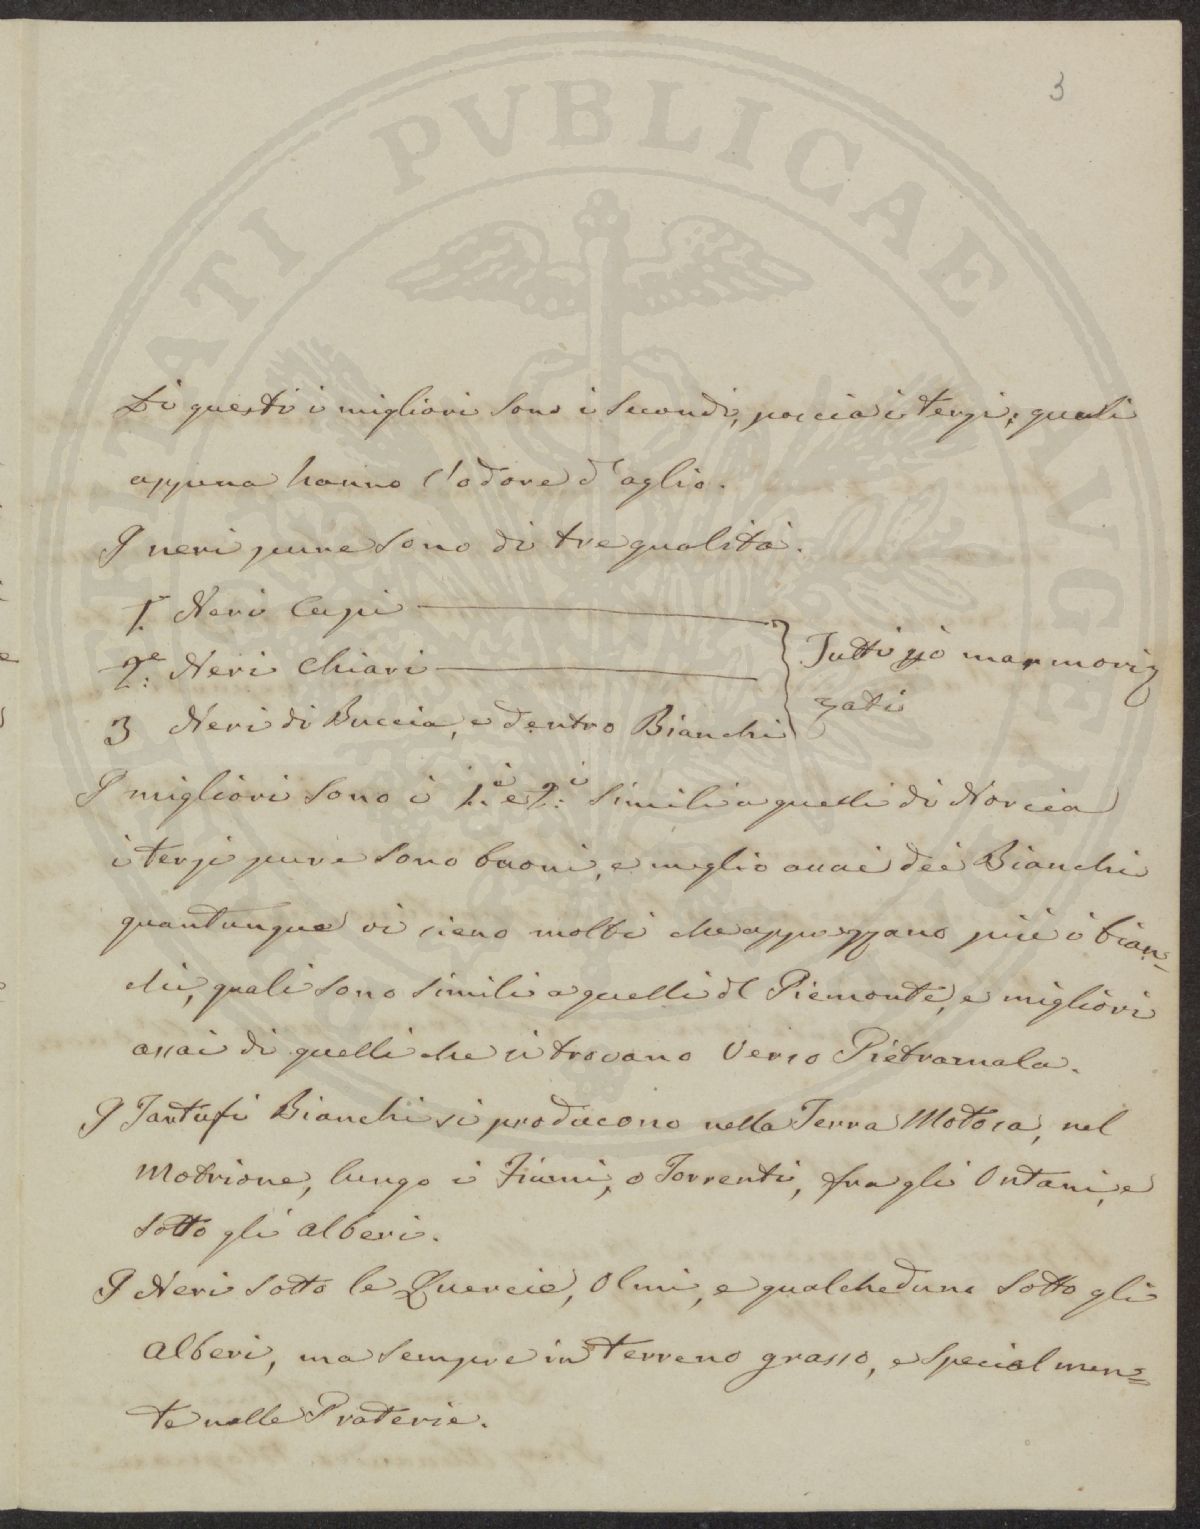 3
Di questi i migliori sono i secondi, poscia i terzi; quali
appena hanno l'odore d'aglio.
I neri pure sono di tre qualità.
1.i Neri Cupi
2.e Neri Chiari
3 Neri di Buccia, e dentro Bianchi
Tutti più marmoriz
zati
I migliori sono i 1.i e 2.i simili a quelli di Norcia
i terzi pure sono buoni, e meglio assai dei Bianchi
quantunque vi sieno molti che apprezzano più i bian-
chi, quali sono simili a quelli del Piemonte, e migliori
assai di quelli che si trovano verso Pietramala.
I Tartufi Bianchi si producono nella Terra Motosa, nel
Motrione, lungo i Fiumi, o Torrenti, fra gli Ontani, e
sotto gli alberi.
I Neri sotto le Quercie, Olmi, e qualcheduno sotto gli
Alberi, ma sempre in terreno grasso, e specialmen=
te nelle Praterie.
PVBLICAE